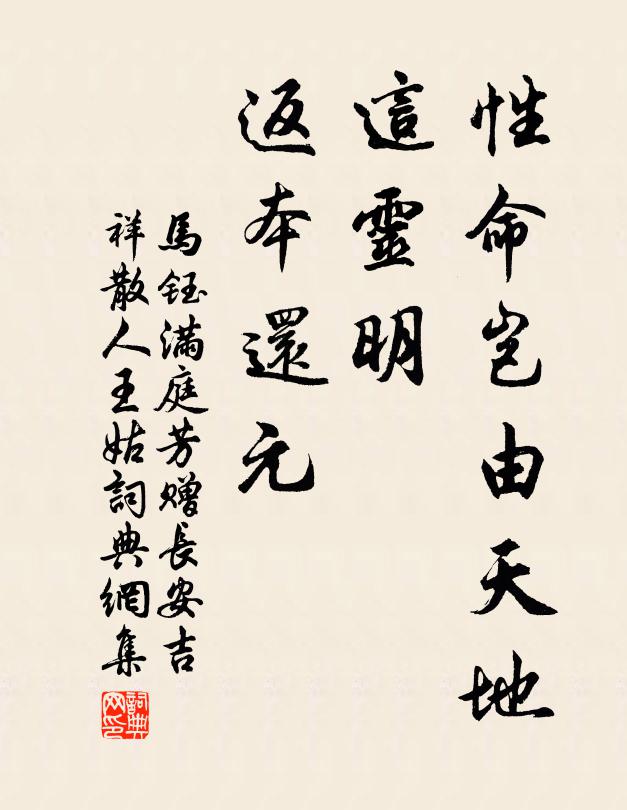 性命岂由天地
這靈明
返本還元
馬鈺满庭芳赠長安吉
祥散人王姑詞典網集
詞典
网印